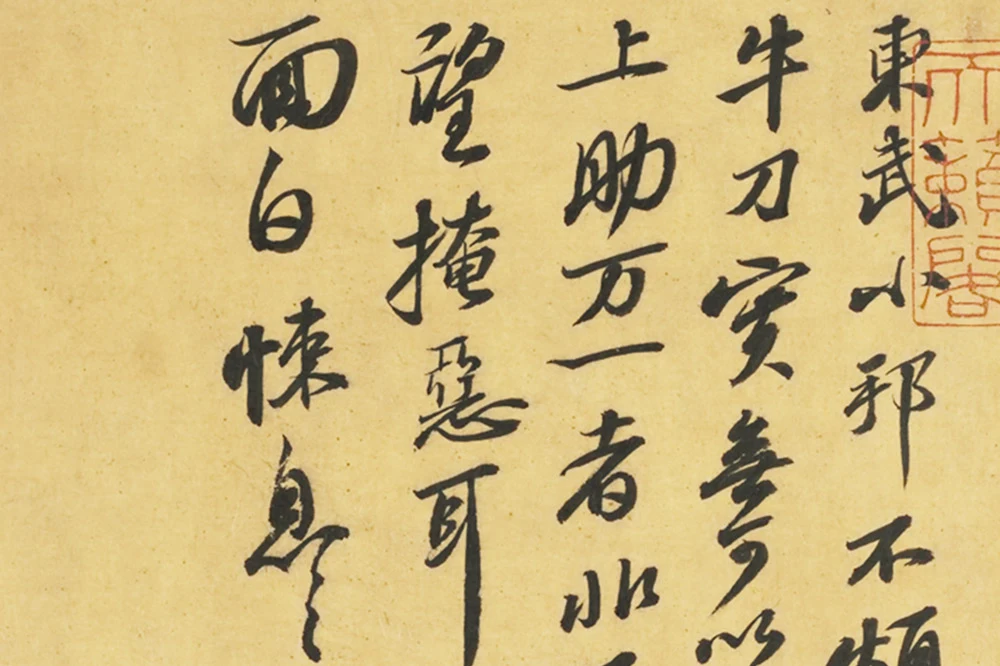 東武小邦不煩
牛刀實無可以
上助万一者非
望掩惡耳
面白悚息々
天籟閣